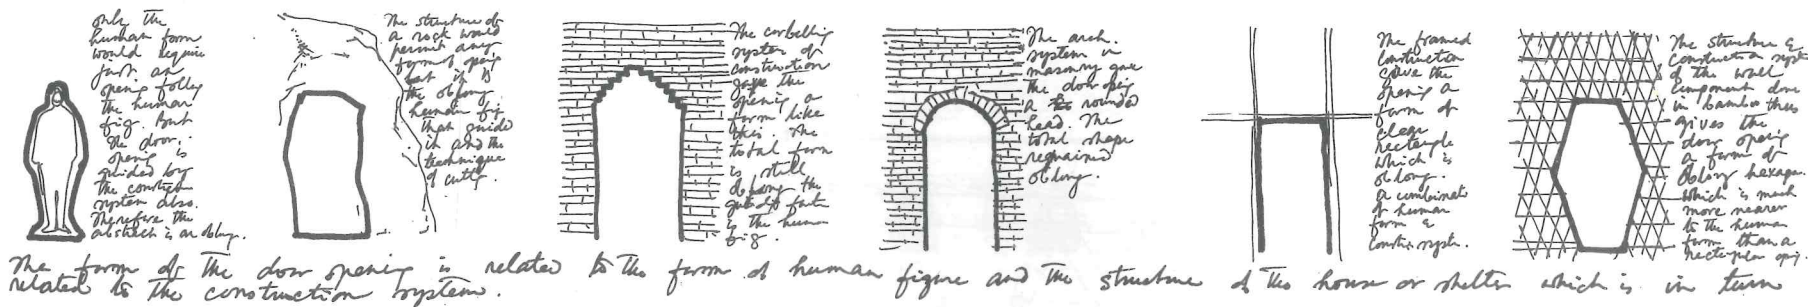 only the
human form
would require
just an
opening follg
the human
fig. But
the door.
opening is
guided by
the constrcn
system also.
Therefore the
abstract is an oblong.
The structure of
a rock would
permit any
form of openig
but it is
the oblong
human fig
that guided
it and the
technique
of cuttg.
The corbellig
system of
construction
gave the
opening a
form like
this. The
total form
is still
oblong the
guidig factr
is the human
fig.
The arch.
system in
masonry gave
the door opig
a rounded
head. The
total shape
remained
oblong.
The framed
construction
gave the
opening a
form of
clear
rectangle
which is
oblong.
a combinati
of human
form &
constn. systm.
The structure &
construction syst
of the wall
component done
in bamboo thus
gives the
door opening
a form of
oblong hexagn.
which is much
more nearer
to the human
form than a
rectangular opng.
The form of the door opening is related to the form of human figure and the structure of the house or shelter which is in turn
related to the construction system.